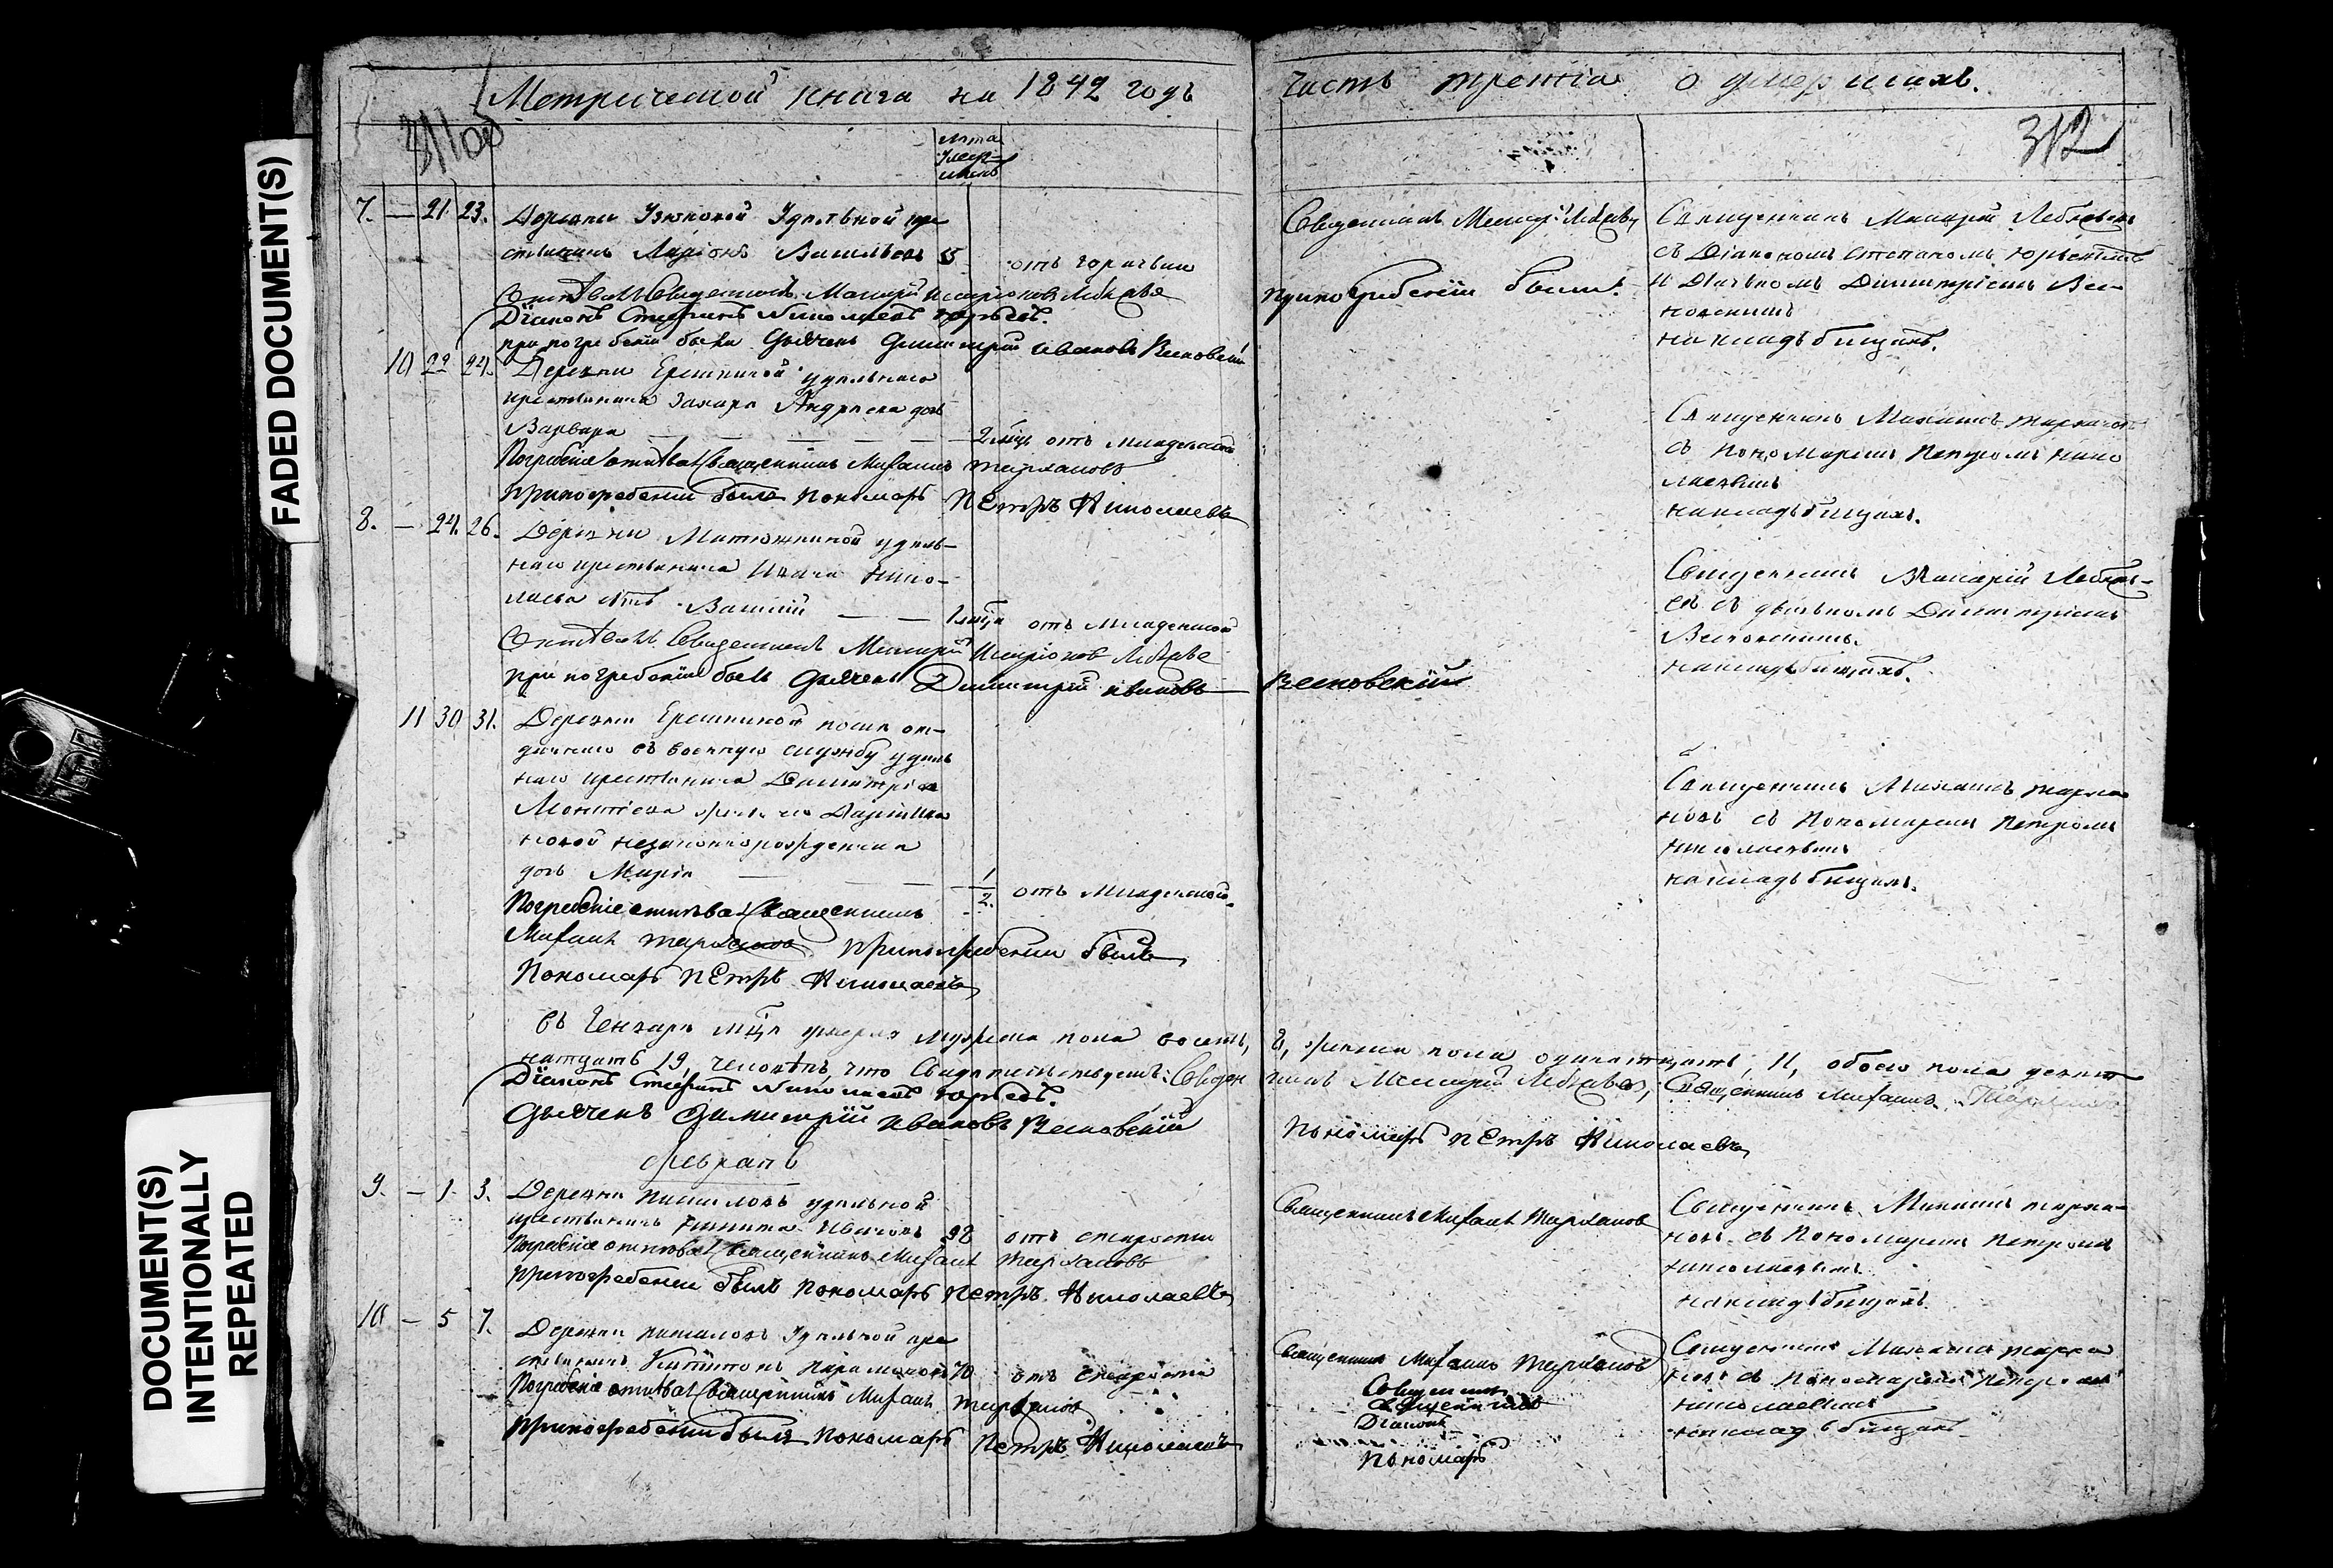 Метрической книги на 1842 годъ
часть третія о умершихъ.
311 об
312
лѣта
умер
шихъ
7. — 21. 23. Деревни Удѣльной кре
стьянинъ Ларіонъ Васильевъ 55 отъ горячки
Отпѣвалъ Священникъ Макарій Иларіоновъ
Діаконъ Стефанъ Николаевъ Юрьевъ.
при погребеніи былъ Дьячекъ Димитрій Ивановъ Весновскій
Священникъ
при погребеніи были.
Священникъ Макарій
съ Діакономъ Стефаномъ Юрьевымъ
и Дьячкомъ Димитріемъ Вес-
новскимъ
на кладбищахъ.
10 22 24. Деревни Ерыкпиной удѣльнаго
крестьянина Захара Андреева дочь
Варвара — — — 2 мца отъ младенской
Погребеніе отпѣвалъ Священникъ Михаилъ Тарханов
при погребеніи былъ Пономарь Петръ Николаевъ
Священникъ Михаилъ Тарханов
съ Пономаремъ Петромъ Нико
лаевымъ
на кладбищахъ.
8. — 24. 26. Деревни Матюшкиной удѣль-
наго крестьянина Ивана Нико-
лаева сынъ Василій — — 1 мца отъ младенской
Отпѣвалъ Священникъ Макарій Иларіонов
при погребеніи былъ Дьячекъ Димитрій Ивановъ Весновскій
Священникъ Макарій
съ дьячкомъ Димитріемъ
Весновскимъ.
на кладбищахъ.
11 30 31. Деревни послѣ от-
даннаго въ военную службу удѣль
наго крестьянина Димитрія
жены его Дарьи Ива
новой незаконнорожденная
дочь Марія — — 1/2. отъ младенской.
Погребеніе отпѣвалъ Священникъ
Михаилъ Тарханов при погребеніи былъ
Пономарь Петръ Николаевъ
Священникъ Михаилъ Тарха
новъ съ Пономаремъ Петромъ
Николаевымъ
на кладбищахъ.
въ Генварѣ мцѣ умерло мужеска пола восемь, 8, женска пола одинатцать, 11, обоего пола девят
натцать 19, человѣкъ, что Свидѣтельствуемъ: Священ никъ Макарій Священникъ Михаилъ Тарханов
Діаконъ Стефанъ Николаевъ Юрьевъ.
Дьячекъ Димитрій Ивановъ Весновскій
Пономарь Петръ Николаевъ
Февраль
9. — 1. 3. Деревни удѣльной
крестьянинъ Никита Ивановъ 98 отъ старости
Погребеніе отпѣвалъ Священникъ Михаилъ Тарханов
при погребеніи былъ Пономарь Петръ Николаевъ
Священникъ Михаилъ Тарханов
Священникъ Михаилъ Тарха-
новъ съ Пономаремъ Петромъ
Николаевымъ
на кладбищахъ.
10 — 5 7. Деревни Удѣльной кре
стьянинъ 70 отъ старости
Погребеніе отпѣвалъ Священникъ Михаилъ Тарханов
при погребеніи былъ Пономарь Петръ Николаевъ
Священникъ Михаилъ Тарханов
Священникъ
Священникъ
Діаконъ
Пономарь
Священникъ Михаилъ Тарха
новъ съ Пономаремъ Петромъ
Николаевымъ
на кладбищахъ
FADED DOCUMENT(S)
DOCUMENT(S)
INTENTIONALLY
REPEATED